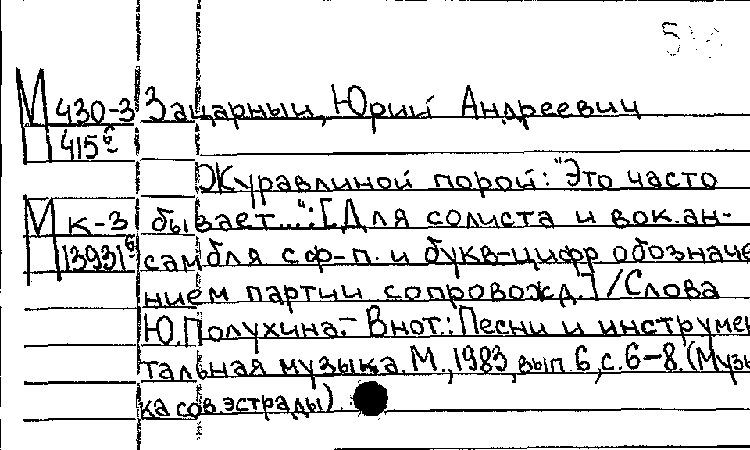 М 430-3 Зацарный, Юрий Андреевич
415б
Журавлиной порой: "Это часто
М к-3 бывает...": [Для солиста и вок. ан-
13931б самбля с ф-п. и букв-цифр обозначе
нием партии сопровожд.] / Слова
Ю. Полухина. - В нот.: Песни и инструмен
тальная музыка. М., 1983, вып. 6, с. 6-8. (Музы
ка сов. эстрады).